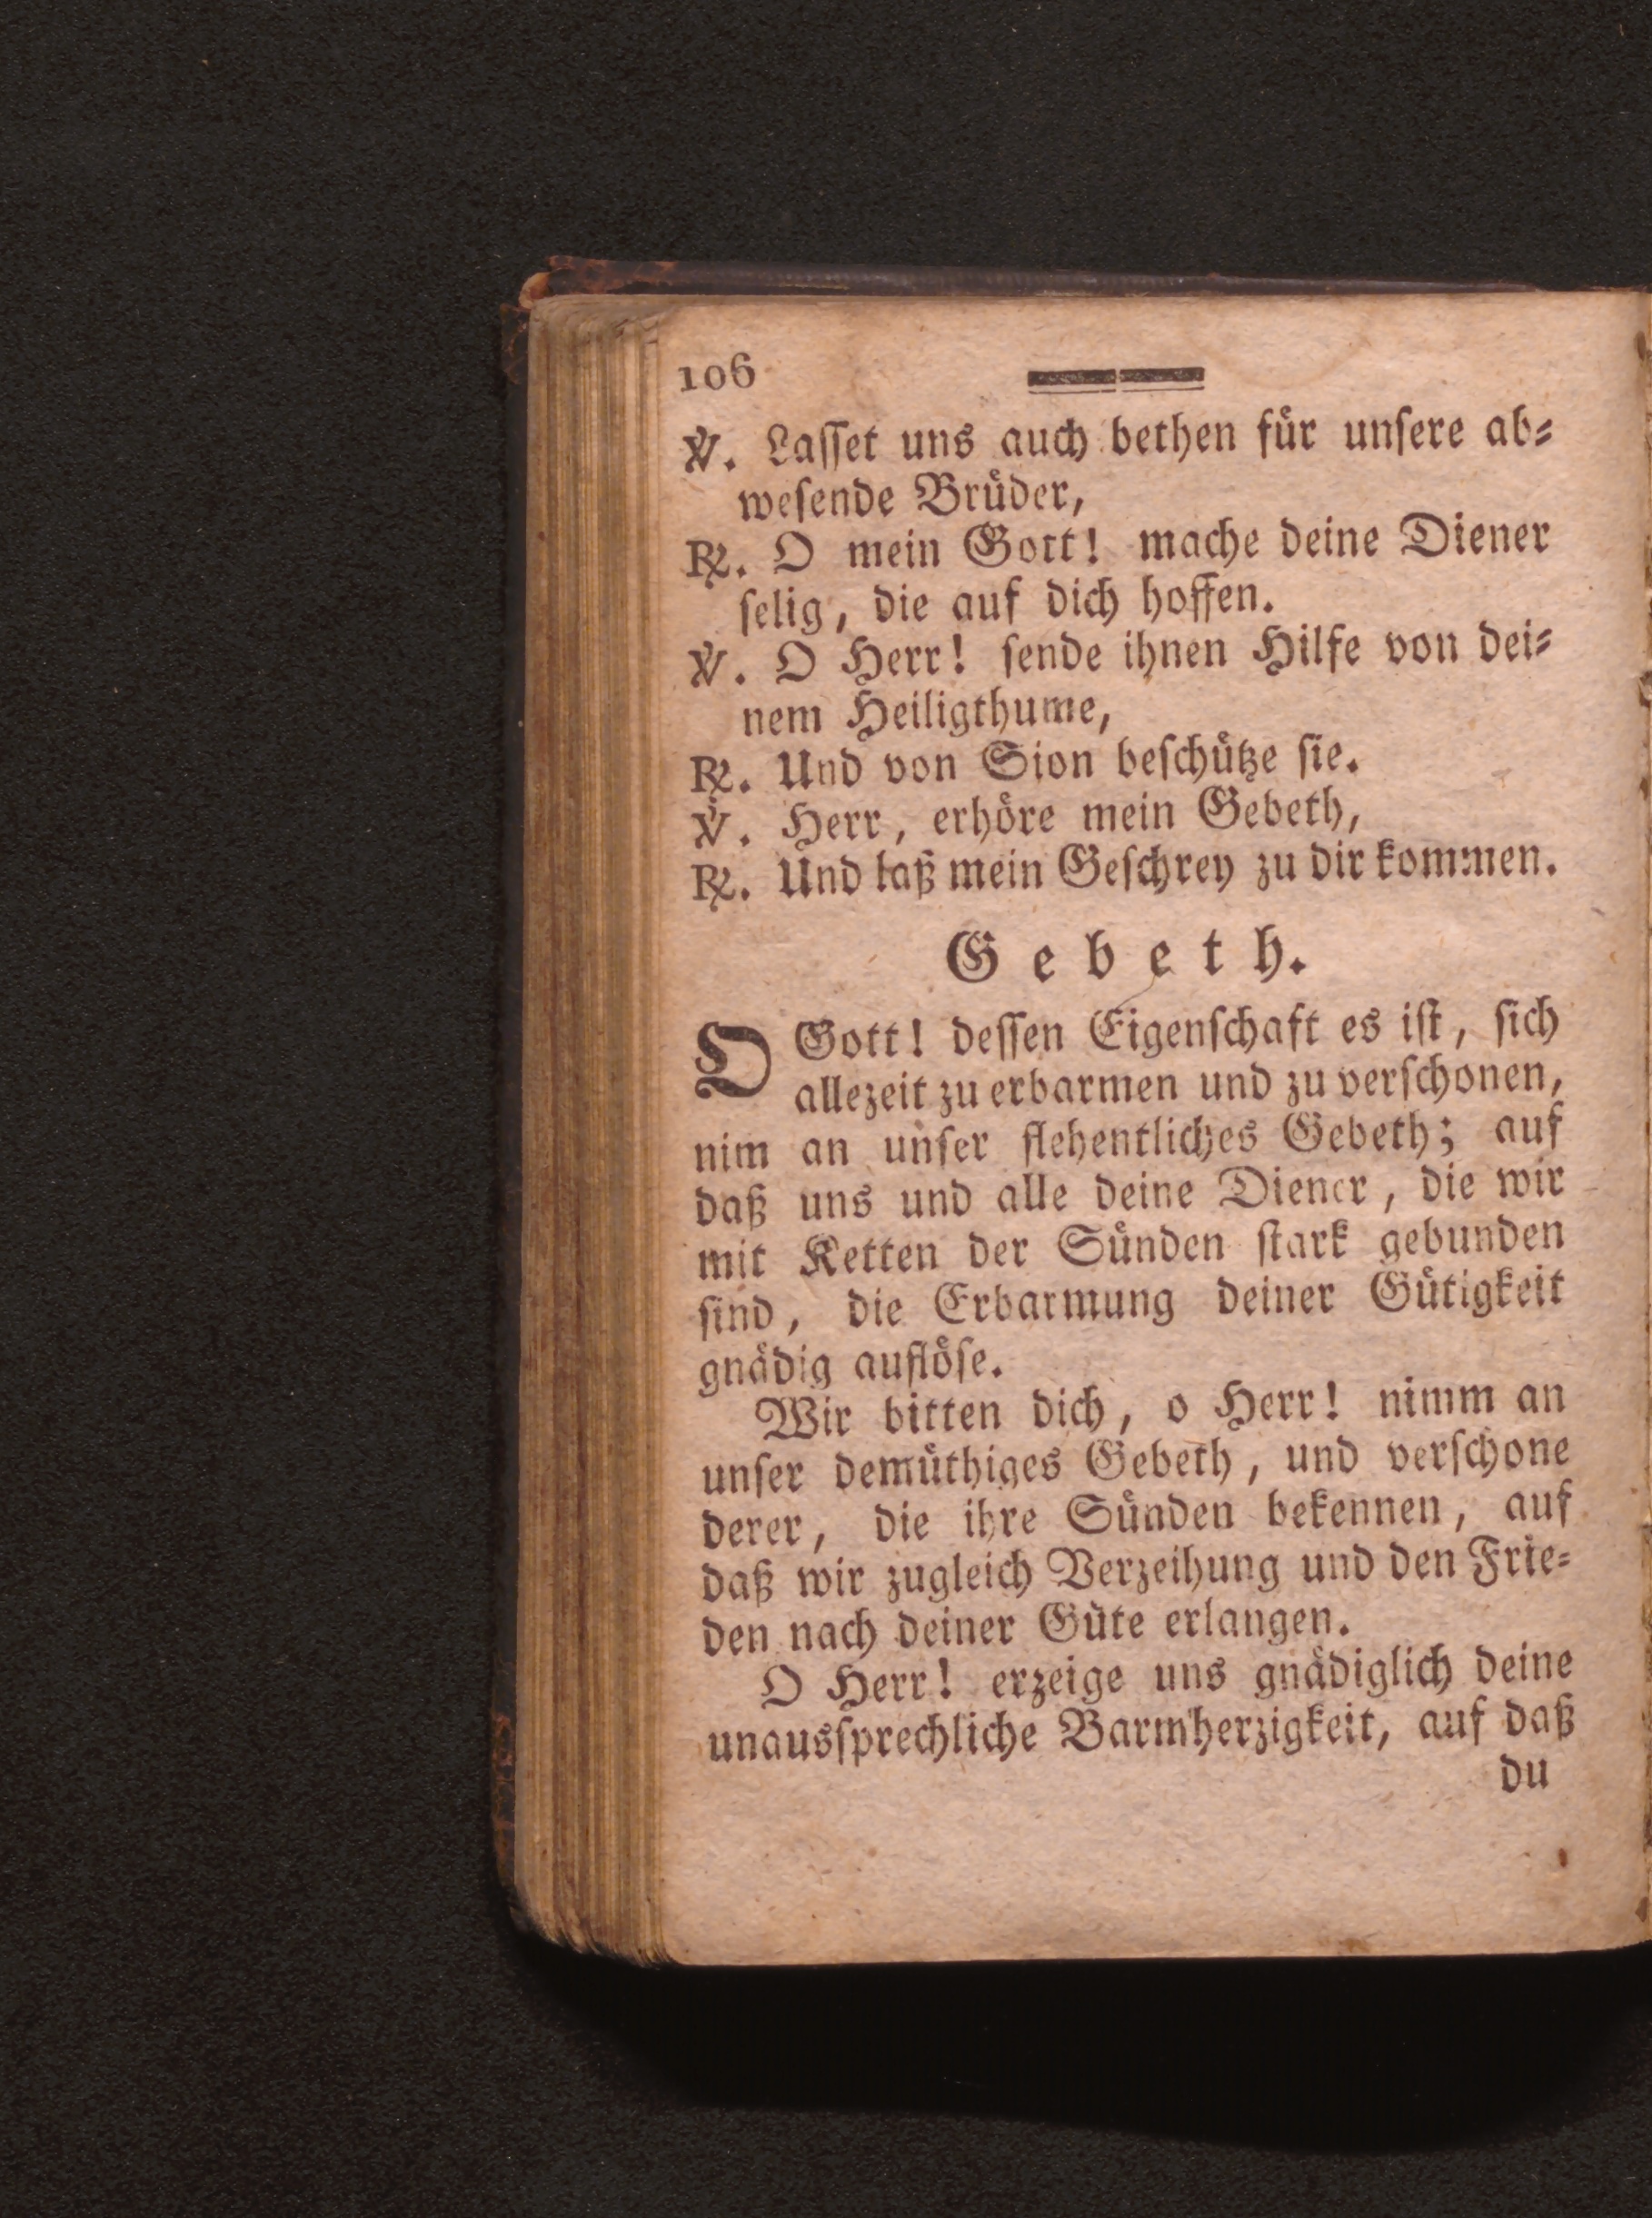 106
℣. Laſſet uns auch bethen für unſere ab⸗
weſende Brüder,
℟. O mein Gott! mache deine Diener
ſelig, die auf dich hoffen.
℣. O Herr! ſende ihnen Hilfe von dei⸗
nem Heiligthume,
℟. Und von Sion beſchütze ſie.
℣. Herr, erhöre mein Gebeth,
℟. Und laß mein Geſchrey zu dir kommen.
Gebeth.
O Gott! deſſen Eigenſchaft es iſt, ſich
allezeit zu erbarmen und zu verſchonen,
nim an unſer flehentliches Gebeth; auf
daß uns und alle deine Diener, die wir
mit Ketten der Sünden ſtark gebunden
ſind, die Erbarmung deiner Gütigkeit
gnädig auflöſe.
Wir bitten dich, o Herr! nimm an
unſer demüthiges Gebeth, und verſchone
derer, die ihre Sünden bekennen, auf
daß wir zugleich Verzeihung und den Frie⸗
den nach deiner Güte erlangen.
O Herr! erzeige uns gnädiglich deine
unausſprechliche Barmherzigkeit, auf daß
du